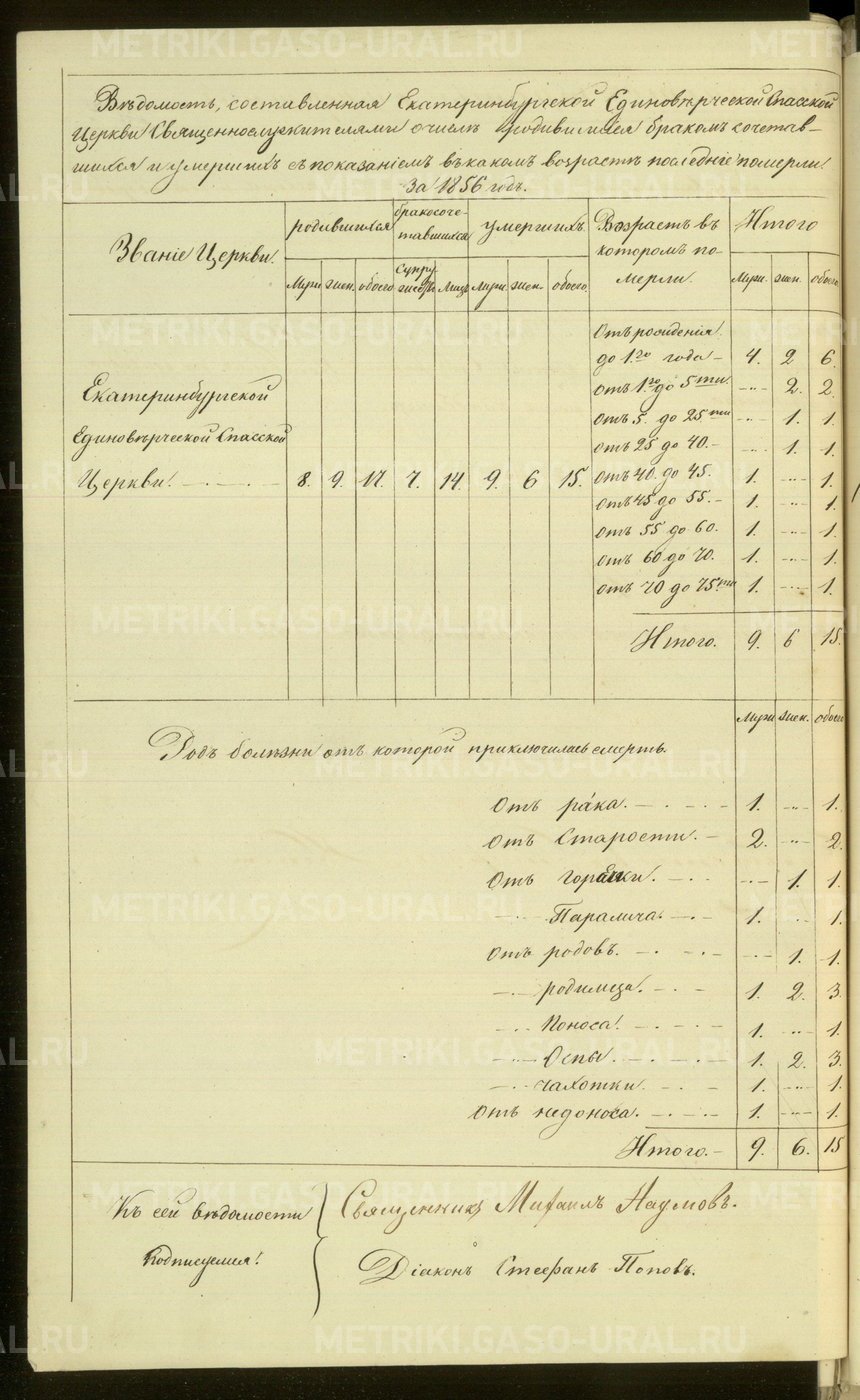 METRIKI.GASO-URAL.RU
Вѣдомость, составленная Екатеринбургской Единовѣрческой Спасской
Церкви Священнослужителями о числѣ родившихся бракомъ сочетав-
шихся и умершихъ съ показаніемъ въ какомъ возрастѣ последніе померли
За 1856 годъ.
Званіе Церкви. родившихся бракосоче-тавшихся умершихъ Возрастъ въ которомъ по-мерли. Итого
Муж. жен. обоего Супружествъ Лицъ Муж. жен. обоего Муж. жен. обоего
Отъ рожденія
до 1.го года – 4. 2 6.
отъ 1.го до 5ти – ,, – 2. 2.
отъ 5. до 25ти – ,, – 1. 1.
отъ 25 до 40. – – ,, – 1. 1.
Екатеринбургской
Единовѣрческой Спасской
Церкви. 8. 9. 17. 7. 14. 9. 6 15. отъ 40. до 45. 1. – ,, – 1.
отъ 45 до 55. – 1. – ,, – 1.
отъ 55 до 60. 1. – ,, – 1.
отъ 60 до 70. 1. – ,, – 1.
отъ 70 до 75ти 1. – ,, – 1.
Итого. 9. 6 15.
Муж жен. обоего
Родъ болѣзни отъ которой приключилась смерть.
Отъ рака. 1. – ,, – 1.
Отъ Старости. – 2. – ,, – 2.
Отъ горячки. – ,, – 1. 1.
– ,, – Паралича. 1. – ,, – 1.
Отъ родовъ. – ,, – 1. 1.
– ,, – родимца. 1. 2. 3.
– ,, – Поноса. 1. – ,, – 1.
– ,, – Оспы. 1. 2. 3.
– ,, – чахотки. 1. – ,, – 1.
Отъ недоноса. 1. – ,, – 1.
Итого. – 9. 6. 15
Къ сей вѣдомости
подписуемся.
Священникъ Михаилъ Наумовъ.
Діаконъ Стефанъ Поповъ.